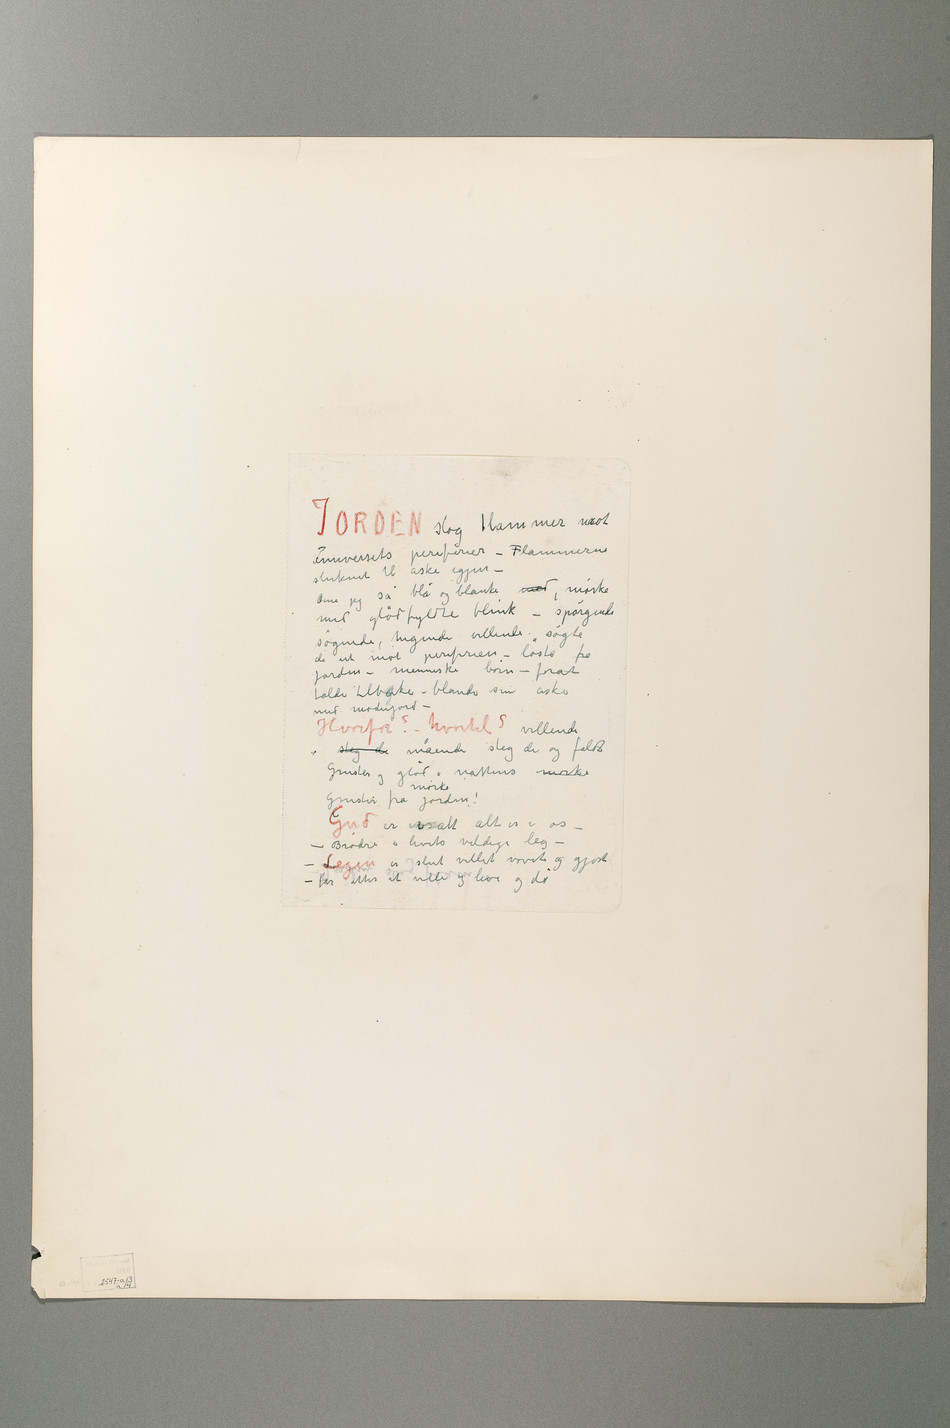 JORDEN slog Flammer mot
Universets periferier – Flammerne
sluknet til aske igjen –
Øine jeg så blå og blanke med, mørke
med glødfyldte blink – spørgende
søgende, tvigende villende. søgte
de ut mot periferien – løste fra
jorden – menneske børn – forat
falde tilbake – blande sin aske
med moderjord –
Hvorfor? – hvortil? villende
slog de mående steg de og faldt
Gnister og glød i nattens mørke
mørke
Gnister fra jorden!
Gud er i alt alt er i os –
– Brødre i livets veldige leg –
– Legen er slut villet vovet og gjort
– for atter at ville og leve og dø
2547-a13
a14